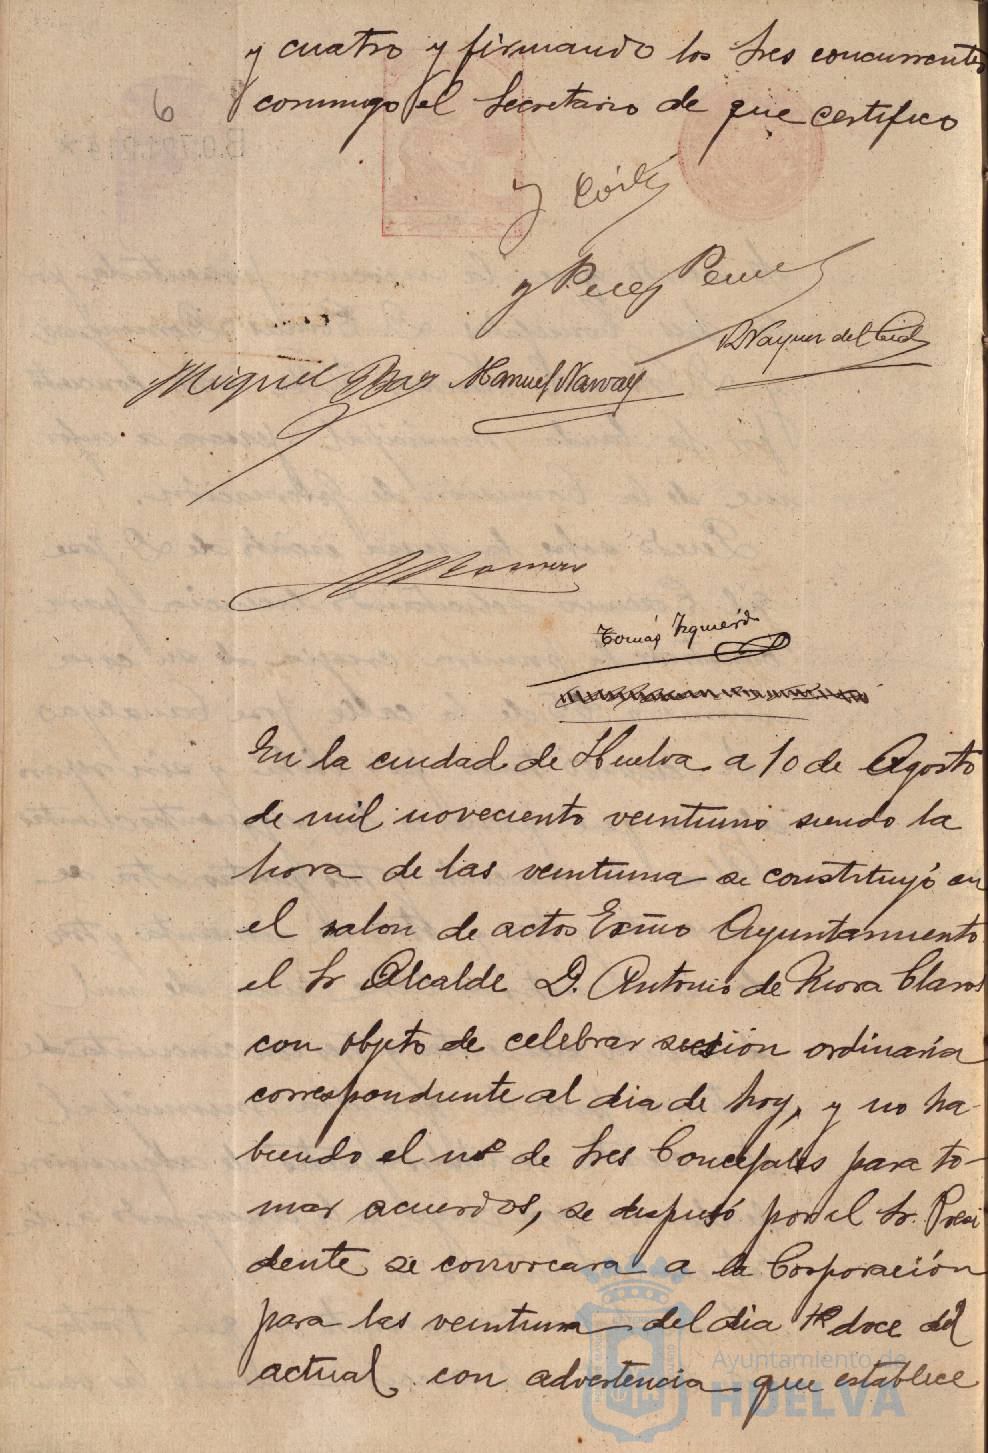 y cuatro y firmando los Sres concurrentes
6
conmigo el Secretario de que certifico
Miguel Manuel Narvaez
Tomás Izquierdo
En la ciudad de Huelva a 10 de Agosto
de mil noveciento veintiuno siendo la
hora de las veintiuna se constituyó en
el salon de actos Excmo Ayuntamiento
el Sr Alcalde D. Antonio de Mora Claros
con objeto de celebrar sesión ordinaria
correspondiente al dia de hoy, y no ha-
biendo el nº de Sres Concejales para to-
mar acuerdos, se dispusó por el Sr. Presi
dente se convocara a la Corporación
para las veintiuna del dia doce del
actual con advertencia que establece
Ayuntamiento de
HUELVA